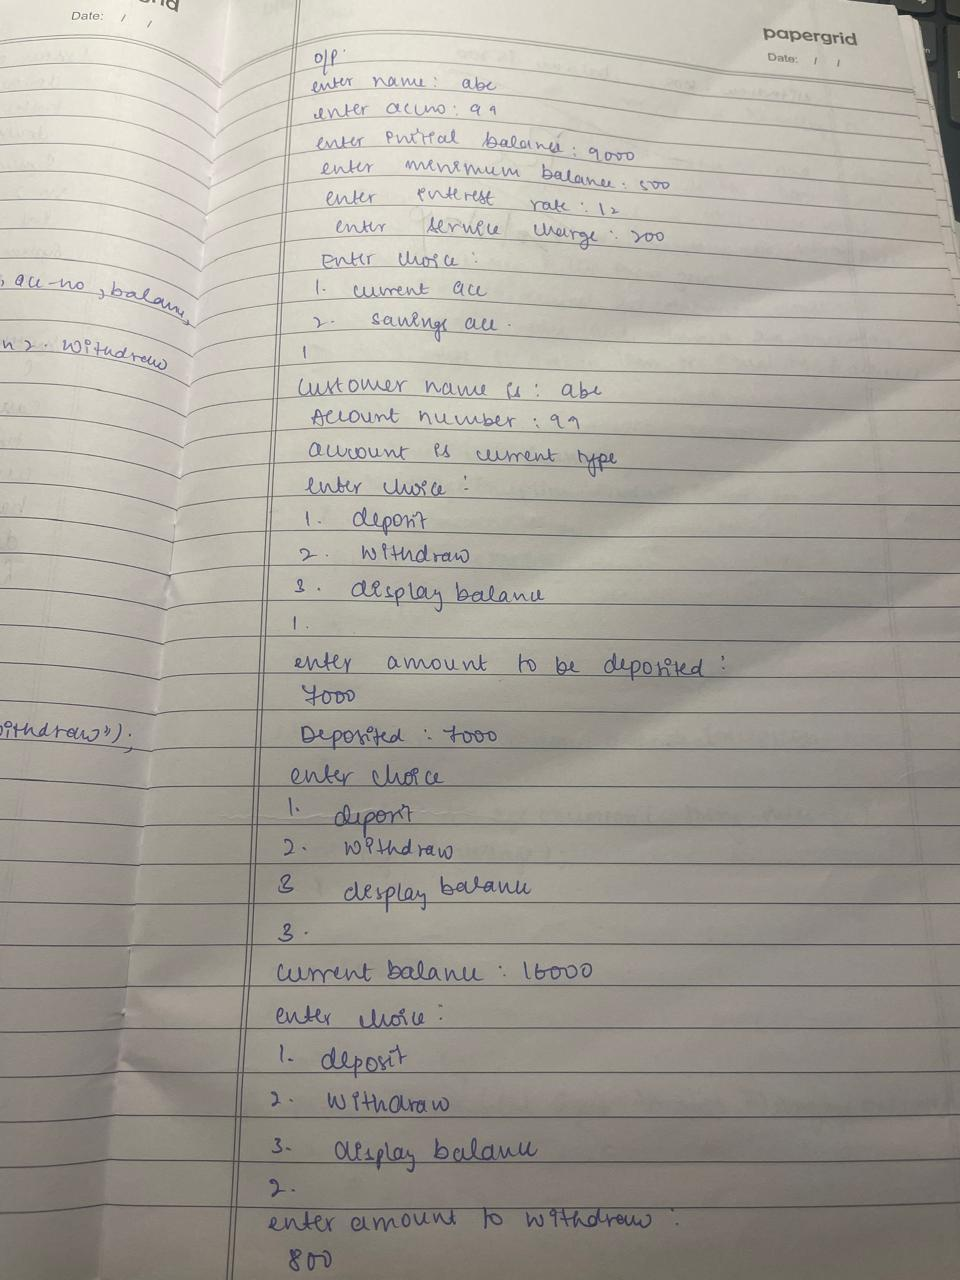 Date: / /
, acc-no, balance,
n 2. withdraw
withdraw");
papergrid
Date: / /
O/P:
enter name: abc
enter accno: 99
enter initial balance: 9000
enter minimum balance: 500
enter interest rate: 12
enter service charge: 200
Enter choice:
1. current acc
2. savings acc.
1
Customer name is: abc
Account number: 99
account is current type
enter choice:
1. deposit
2. withdraw
3. display balance
1.
enter amount to be deposited:
7000
Deposited: 7000
enter choice
1. deposit
2. withdraw
3 display balance
3.
current balance: 16000
enter choice:
1. deposit
2. withdraw
3. display balance
2.
enter amount to withdraw:
800